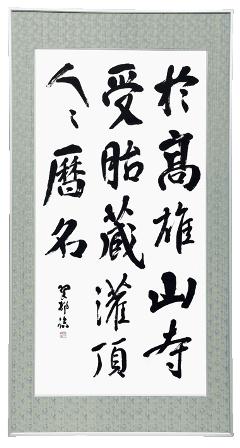 於高雄山寺
受胎蔵灌頂
人々暦名